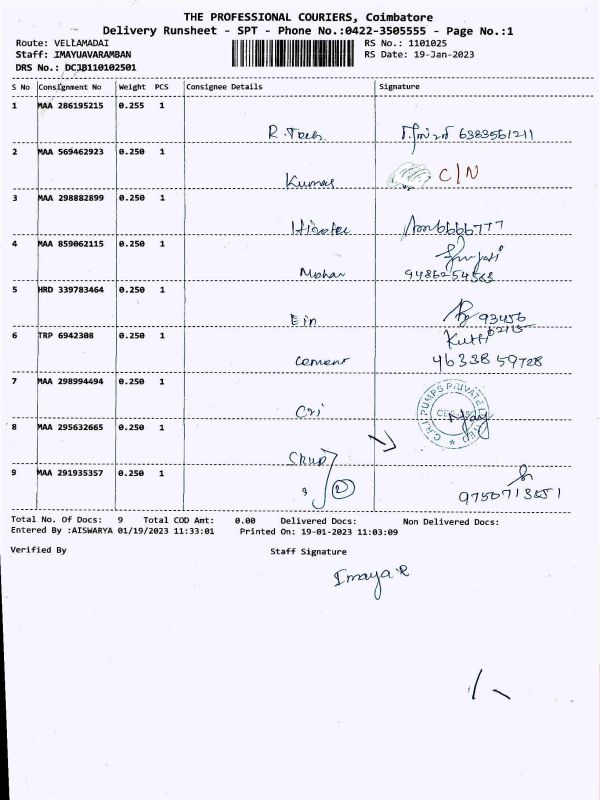 THE PROFESSIONAL COURIERS, Coimbatore
Delivery Runsheet - SPT - Phone No.:0422-3505555 - Page No.:1
Route: VELLAMADAI
RS No.: 1101025
Staff: IMAYUAVARAMBAN
RS Date: 19-Jan-2023
DRS No.: DCJB110102501
S No Consignment No Weight PCS Consignee Details Signature
1 MAA 286195215 0.255 1
6383561211
2 MAA 569462923 0.250 1
Kumar C/N
3 MAA 298882899 0.250 1
6666777
4 MAA 859062115 0.250 1
Mohan
5 HRD 339783464 0.250 1
Ein 93456
6 TRP 6942308 0.250 1
Kutti
cement 96338 59728
7 MAA 298994494 0.250 1
C.R.I PUMPS PRIVATE LIMITED
Cri
8 MAA 295632665 0.250 1
9 MAA 291935357 0.250 1
3 2
Total No. Of Docs: 9 Total COD Amt: 0.00 Delivered Docs: Non Delivered Docs:
Entered By :AISWARYA 01/19/2023 11:33:01 Printed On: 19-01-2023 11:03:09
Verified By Staff Signature
Imaya R